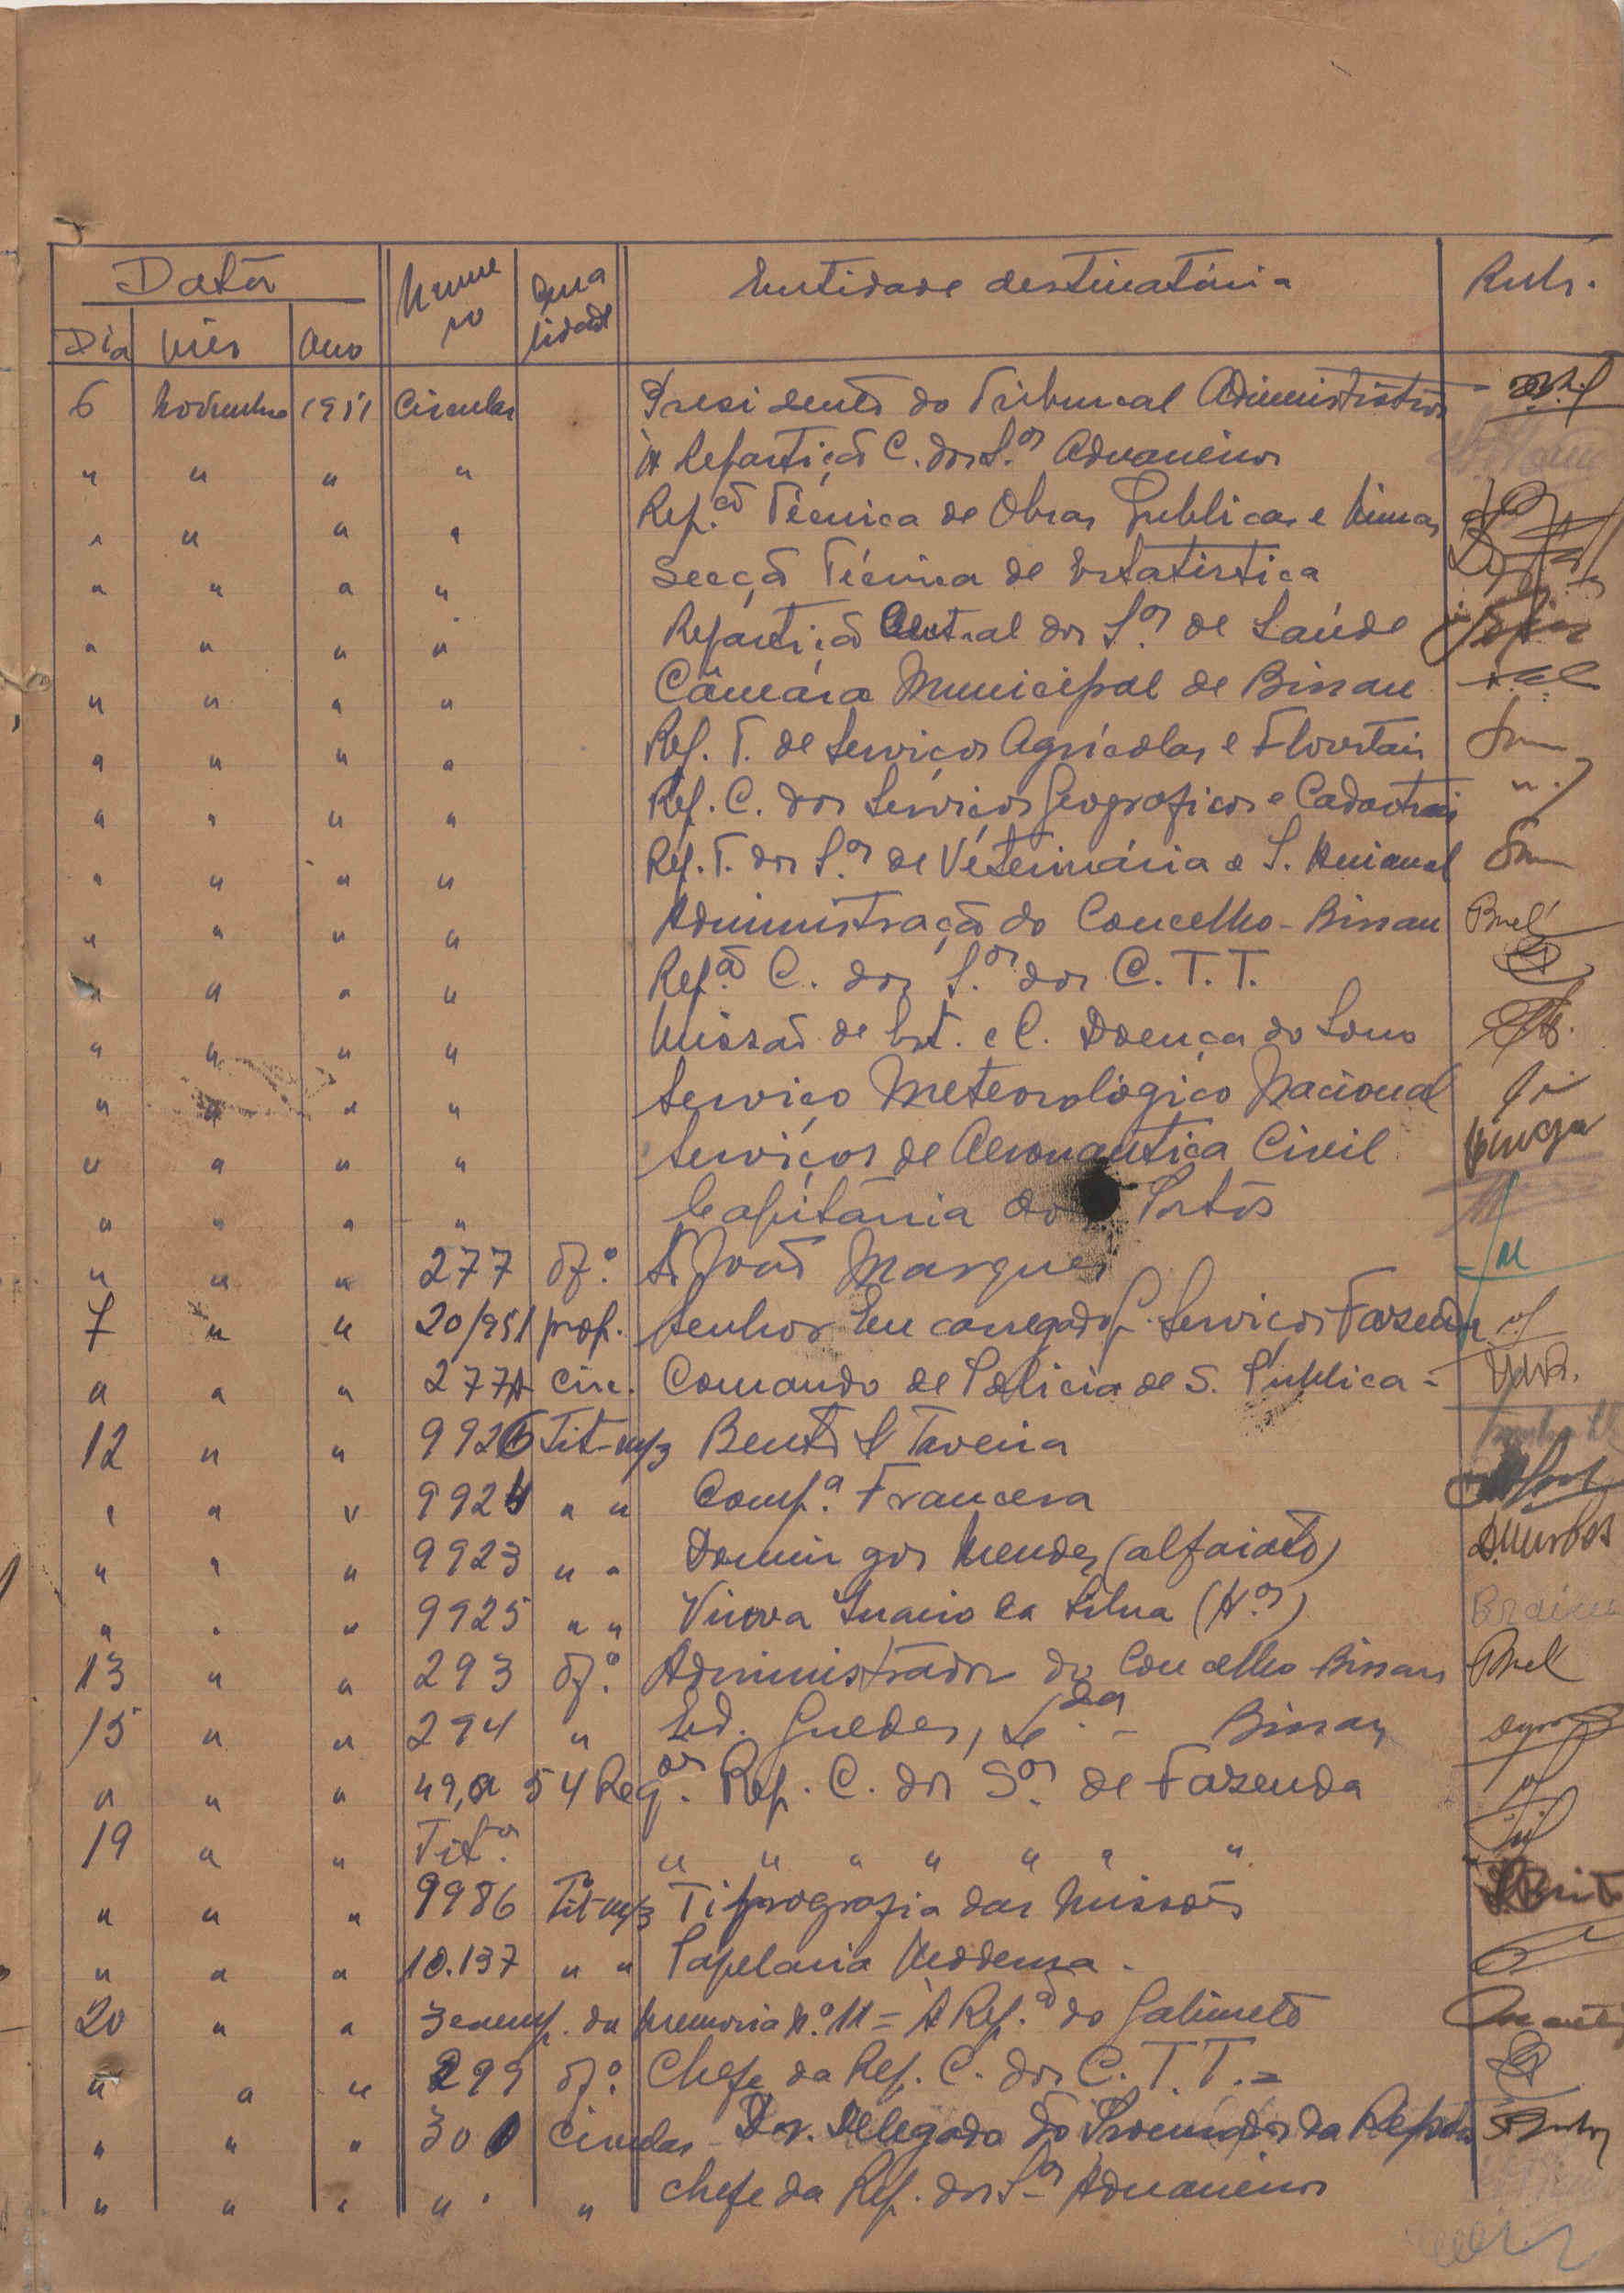 Data Nume Qua Entidade destinatária Rubr.
Dia Mês Ano ro lidade
6 Novembro 1951 Circular Presidente do Tribunal Administrativo
" " " " À Repartição C. dos S.os Aduaneiros
" " " " Rep.ão Técnica de Obras Publicas e Minas
" " " " Secção Técnica de Estatistica
" " " " Repartição Central dos S.os de Saúde
" " " " Câmara Municipal de Bissau
" " " " Rep. T. de Serviços Agrícolas e Florestais
" " " " Rep. C. dos Serviços Geograficos e Cadastrais
" " " " Rep. T. dos S.os de Veterinária e I. Animal
" " " " Administração do Concelho - Bissau
" " " " Rep.ão C. dos S.os dos C. T. T.
" " " " Missão de Est. e C. Doença do Sono
" " " " Serviço Meteorológico Nacional
" " " " Serviços de Aeronautica Civil
" " " " Capitania dos Portos
" " " " 277 of.º A João Marques
7 " " 20/951 prop. Senhor Encarregado Serviços Fazenda
" " " 277A Circ. Comando de Policia de S. Publica -
12 " " 9926 Tit-m/3 Bento & Taveira
" " " 992 " " Comp.ª Francesa
" " " 9923 " " Domingos Mendes (alfaiate)
" " " 9925 " " Viuva Inacio da Silva (H.os)
13 " " 293 of.º Administrador do Concelho Bissau
15 " " 294 " Ed. Guedes, L.da - Bissau
" " " 49, a 54 Req.os Rep. C. dos S.os de Fazenda
19 " " Tit.os " " " " " " "
" " " 9986 Tit-m/3 Tiprografia das Missões
" " " 10.137 " " Papelaria
20 " " 3 exemp. da Memoria N.º 11 = À Rep.ão do Gabinete
" " " 299 of.º Chefe da Rep. C. dos C. T. T. =
" " " 300 Circular - Dr. Delegado do Procurador da Repub
" " " " " Chefe da Rep. dos S.os Aduaneiros